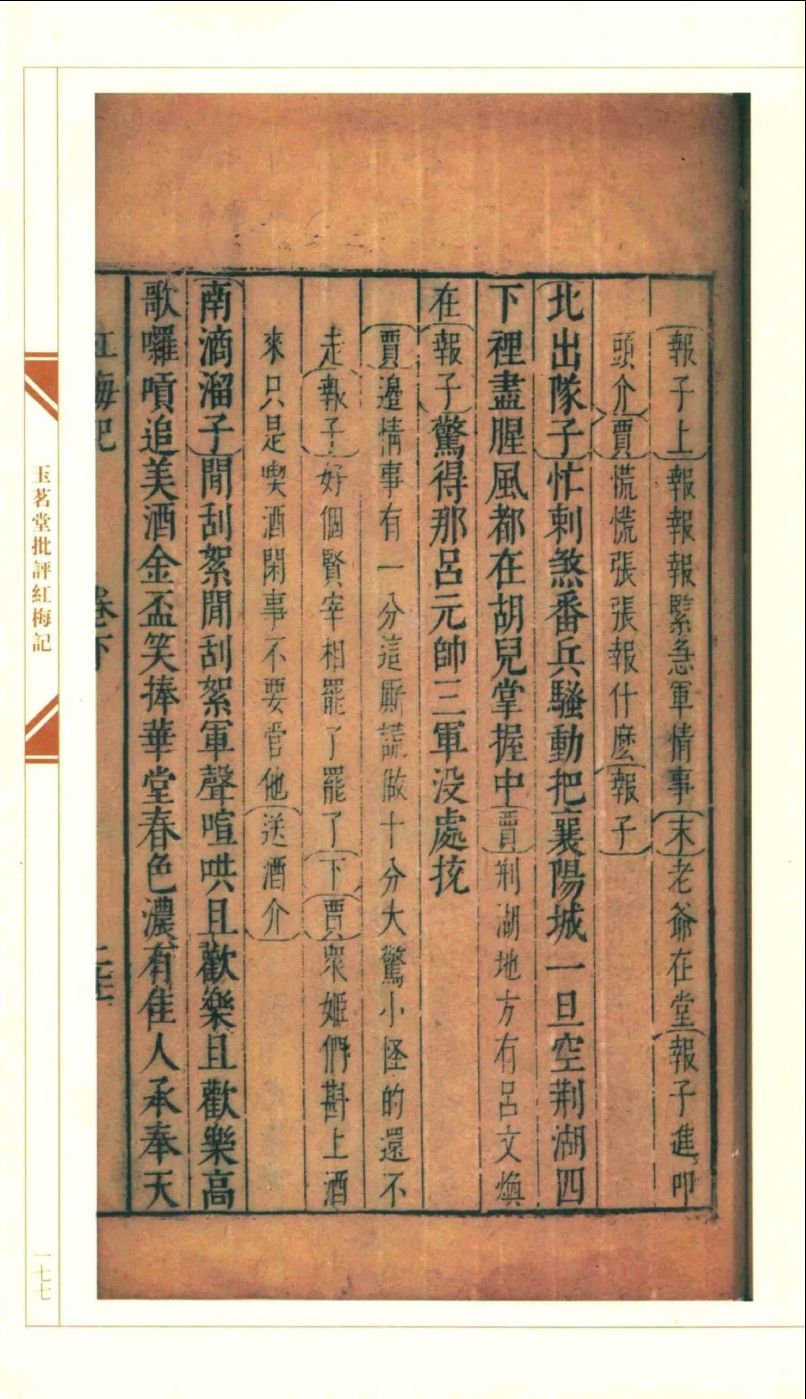 報子上報報報緊急軍情事末老爺在堂報子進叩
頭介賈慌慌張張報什麼報子
北出隊子忙剌煞番兵騷動把襄陽城一旦空荆湖四
下裡盡腥風都在胡兒掌握中賈荆湖地方有呂文煥
在報子驚得那呂元帥三軍没處挍
賈邉情事有一分這厮謊做十分大驚小怪的還不
走報子好個賢宰相罷了罷了下賈衆姬們斟上酒
來只是喫酒閑事不要管他送酒介
南滴溜子閙刮絮閙刮絮軍聲喧哄且歡樂且歡樂高
歌囉嗊追美酒金盃笑捧華堂春色濃有佳人承奉天
紅梅記 卷下
玉茗堂批評紅梅記
一七七